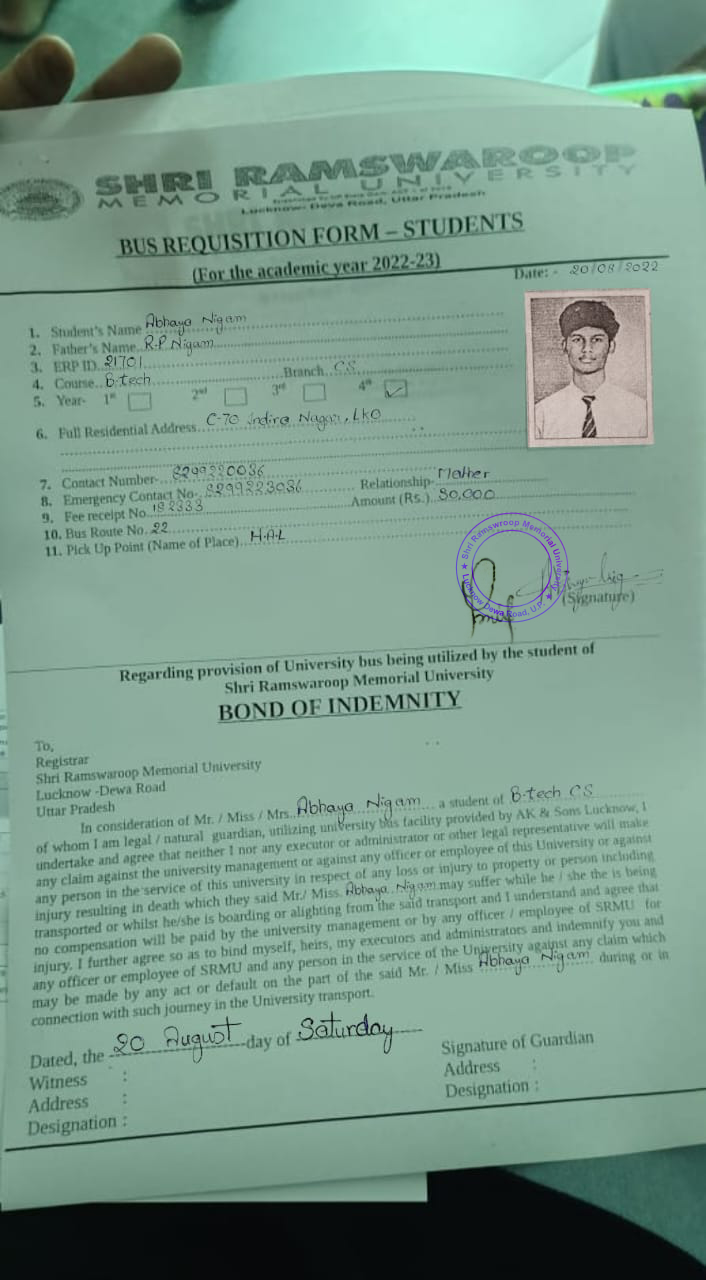 SHRI RAMSWAROOP
MEMORIAL UNIVERSITY
Lucknow- Deva Road, Uttar Pradesh
BUS REQUISITION FORM – STUDENTS
(For the academic year 2022-23)
Date: - 20/08/2022
1. Student's Name Abhaya Nigam
2. Father's Name R.P Nigam
3. ERP ID 21701
4. Course B.tech Branch CS
5. Year- 1st 2nd 3rd 4th ✓
6. Full Residential Address C-70 Indira Nagar, LKO
7. Contact Number- 8299220036
8. Emergency Contact No- 8299223036 Relationship- Mother
9. Fee receipt No. 192333 Amount (Rs.) 30,000
10. Bus Route No. 22
11. Pick Up Point (Name of Place) H.A.L
★ Shri Ramswroop Memorial University ★ Lucknow Dewa Road, U.P.
(Signature)
Regarding provision of University bus being utilized by the student of
Shri Ramswaroop Memorial University
BOND OF INDEMNITY
To,
Registrar
Shri Ramswaroop Memorial University
Lucknow -Dewa Road
Uttar Pradesh
In consideration of Mr. / Miss / Mrs. Abhaya Nigam a student of B-tech CS
of whom I am legal / natural guardian, utilizing university bus facility provided by AK & Sons Lucknow, I
undertake and agree that neither I nor any executor or administrator or other legal representative will make
any claim against the university management or against any officer or employee of this University or against
any person in the service of this university in respect of any loss or injury to property or person including
injury resulting in death which they said Mr./ Miss. Abhaya Nigam may suffer while he / she the is being
transported or whilst he/she is boarding or alighting from the said transport and I understand and agree that
no compensation will be paid by the university management or by any officer / employee of SRMU for
injury. I further agree so as to bind myself, heirs, my executors and administrators and indemnify you and
any officer or employee of SRMU and any person in the service of the University against any claim which
may be made by any act or default on the part of the said Mr. / Miss Abhaya Nigam during or in
connection with such journey in the University transport.
Dated, the 20 August day of Saturday
Witness :
Address :
Designation :
Signature of Guardian
Address :
Designation :